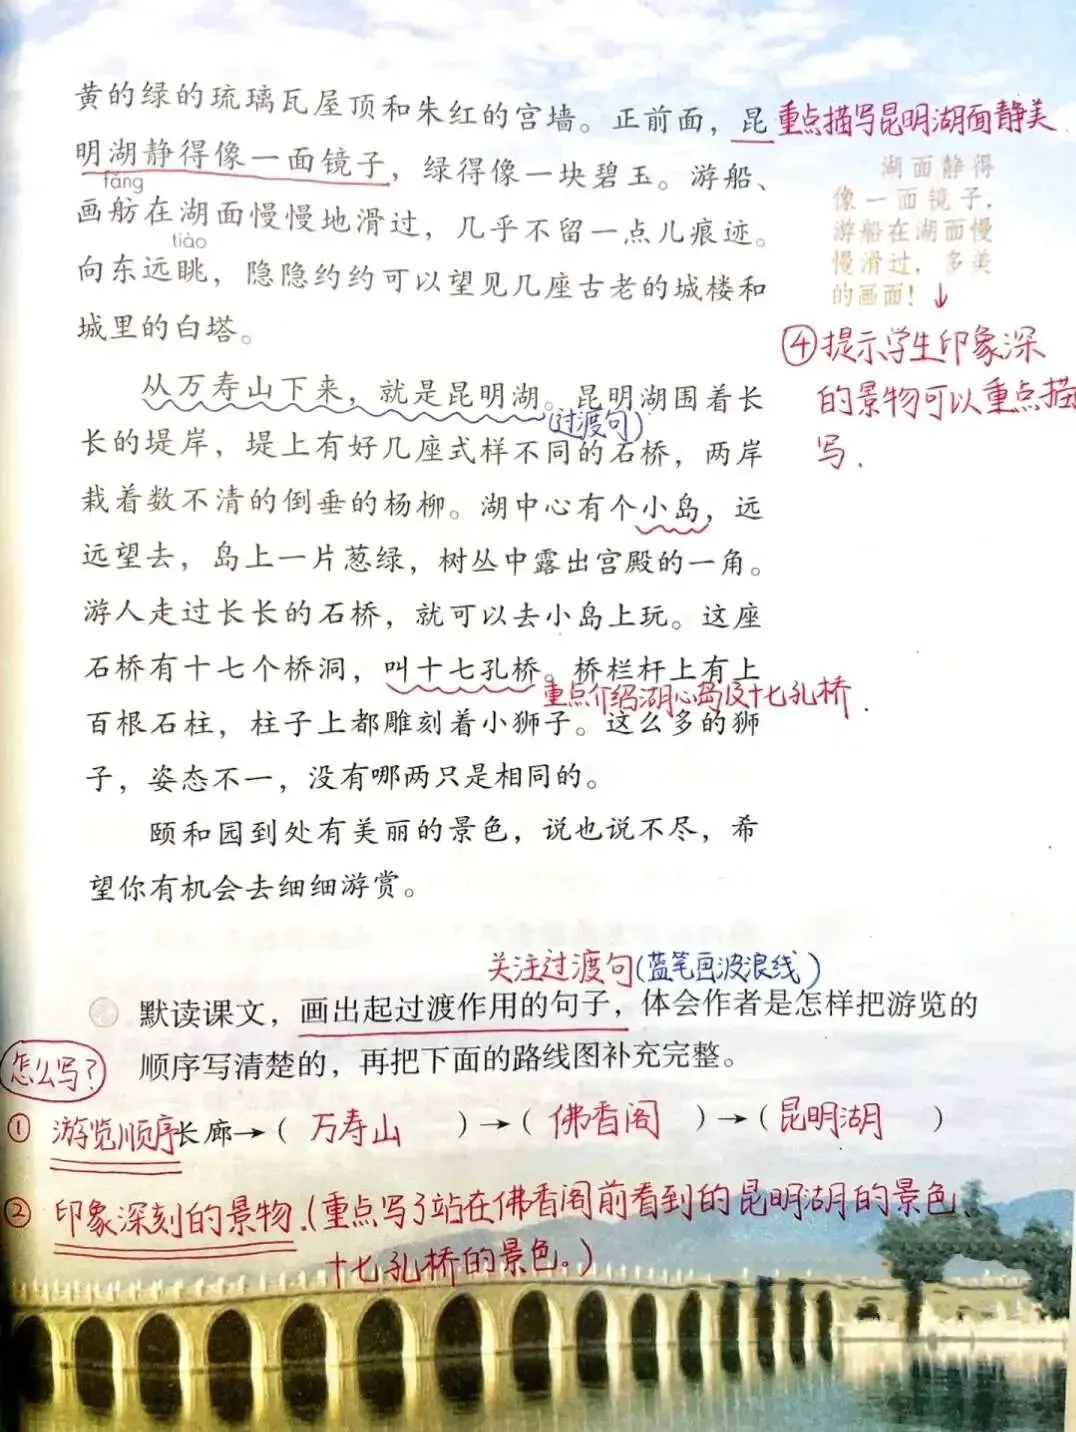 黄的绿的琉璃瓦屋顶和朱红的宫墙。正前面，昆
重点描写昆明湖面静美.
明湖静得像一面镜子，绿得像一块碧玉。游船、
fǎng
画舫在湖面慢慢地滑过，几乎不留一点儿痕迹。
tiào
向东远眺，隐隐约约可以望见几座古老的城楼和
城里的白塔。
湖面静得
像一面镜子，
游船在湖面慢
慢滑过，多美
的画面！↓
④提示学生印象深
的景物可以重点描
写.
从万寿山下来，就是昆明湖。昆明湖围着长
(过渡句)
长的堤岸，堤上有好几座式样不同的石桥，两岸
栽着数不清的倒垂的杨柳。湖中心有个小岛，远
远望去，岛上一片葱绿，树丛中露出宫殿的一角。
游人走过长长的石桥，就可以去小岛上玩。这座
石桥有十七个桥洞，叫十七孔桥。桥栏杆上有上
重点介绍湖心岛及十七孔桥.
百根石柱，柱子上都雕刻着小狮子。这么多的狮
子，姿态不一，没有哪两只是相同的。
颐和园到处有美丽的景色，说也说不尽，希
望你有机会去细细游赏。
关注过渡句(蓝笔画波浪线)
默读课文，画出起过渡作用的句子，体会作者是怎样把游览的
顺序写清楚的，再把下面的路线图补充完整。
怎么写？
① 游览顺序 长廊→（ 万寿山 ）→（ 佛香阁 ）→（昆明湖 ）
② 印象深刻的景物.(重点写了站在佛香阁前看到的昆明湖的景色、
十七孔桥的景色。)